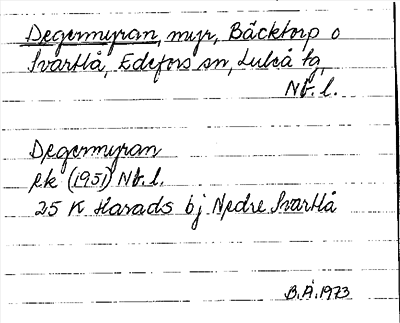 Degermyran, myr, Bäcktorp o
Svartlå, Edefors sn, Luleå tg,
Nb. l.
Degermyran
ek (1951) Nb. l.
25 K Harads bj Nedre Svartlå
B.Å.1973